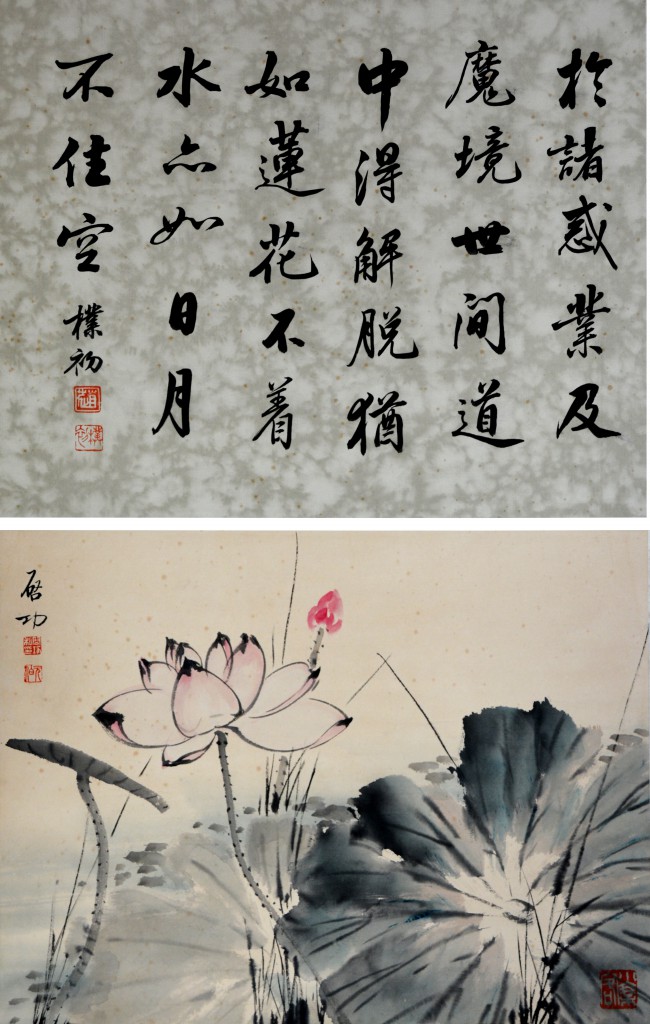 於諸惑業及
魔境世間道
中得解脱猶
如蓮花不着
水亦如日月
不住空
樸初
启功